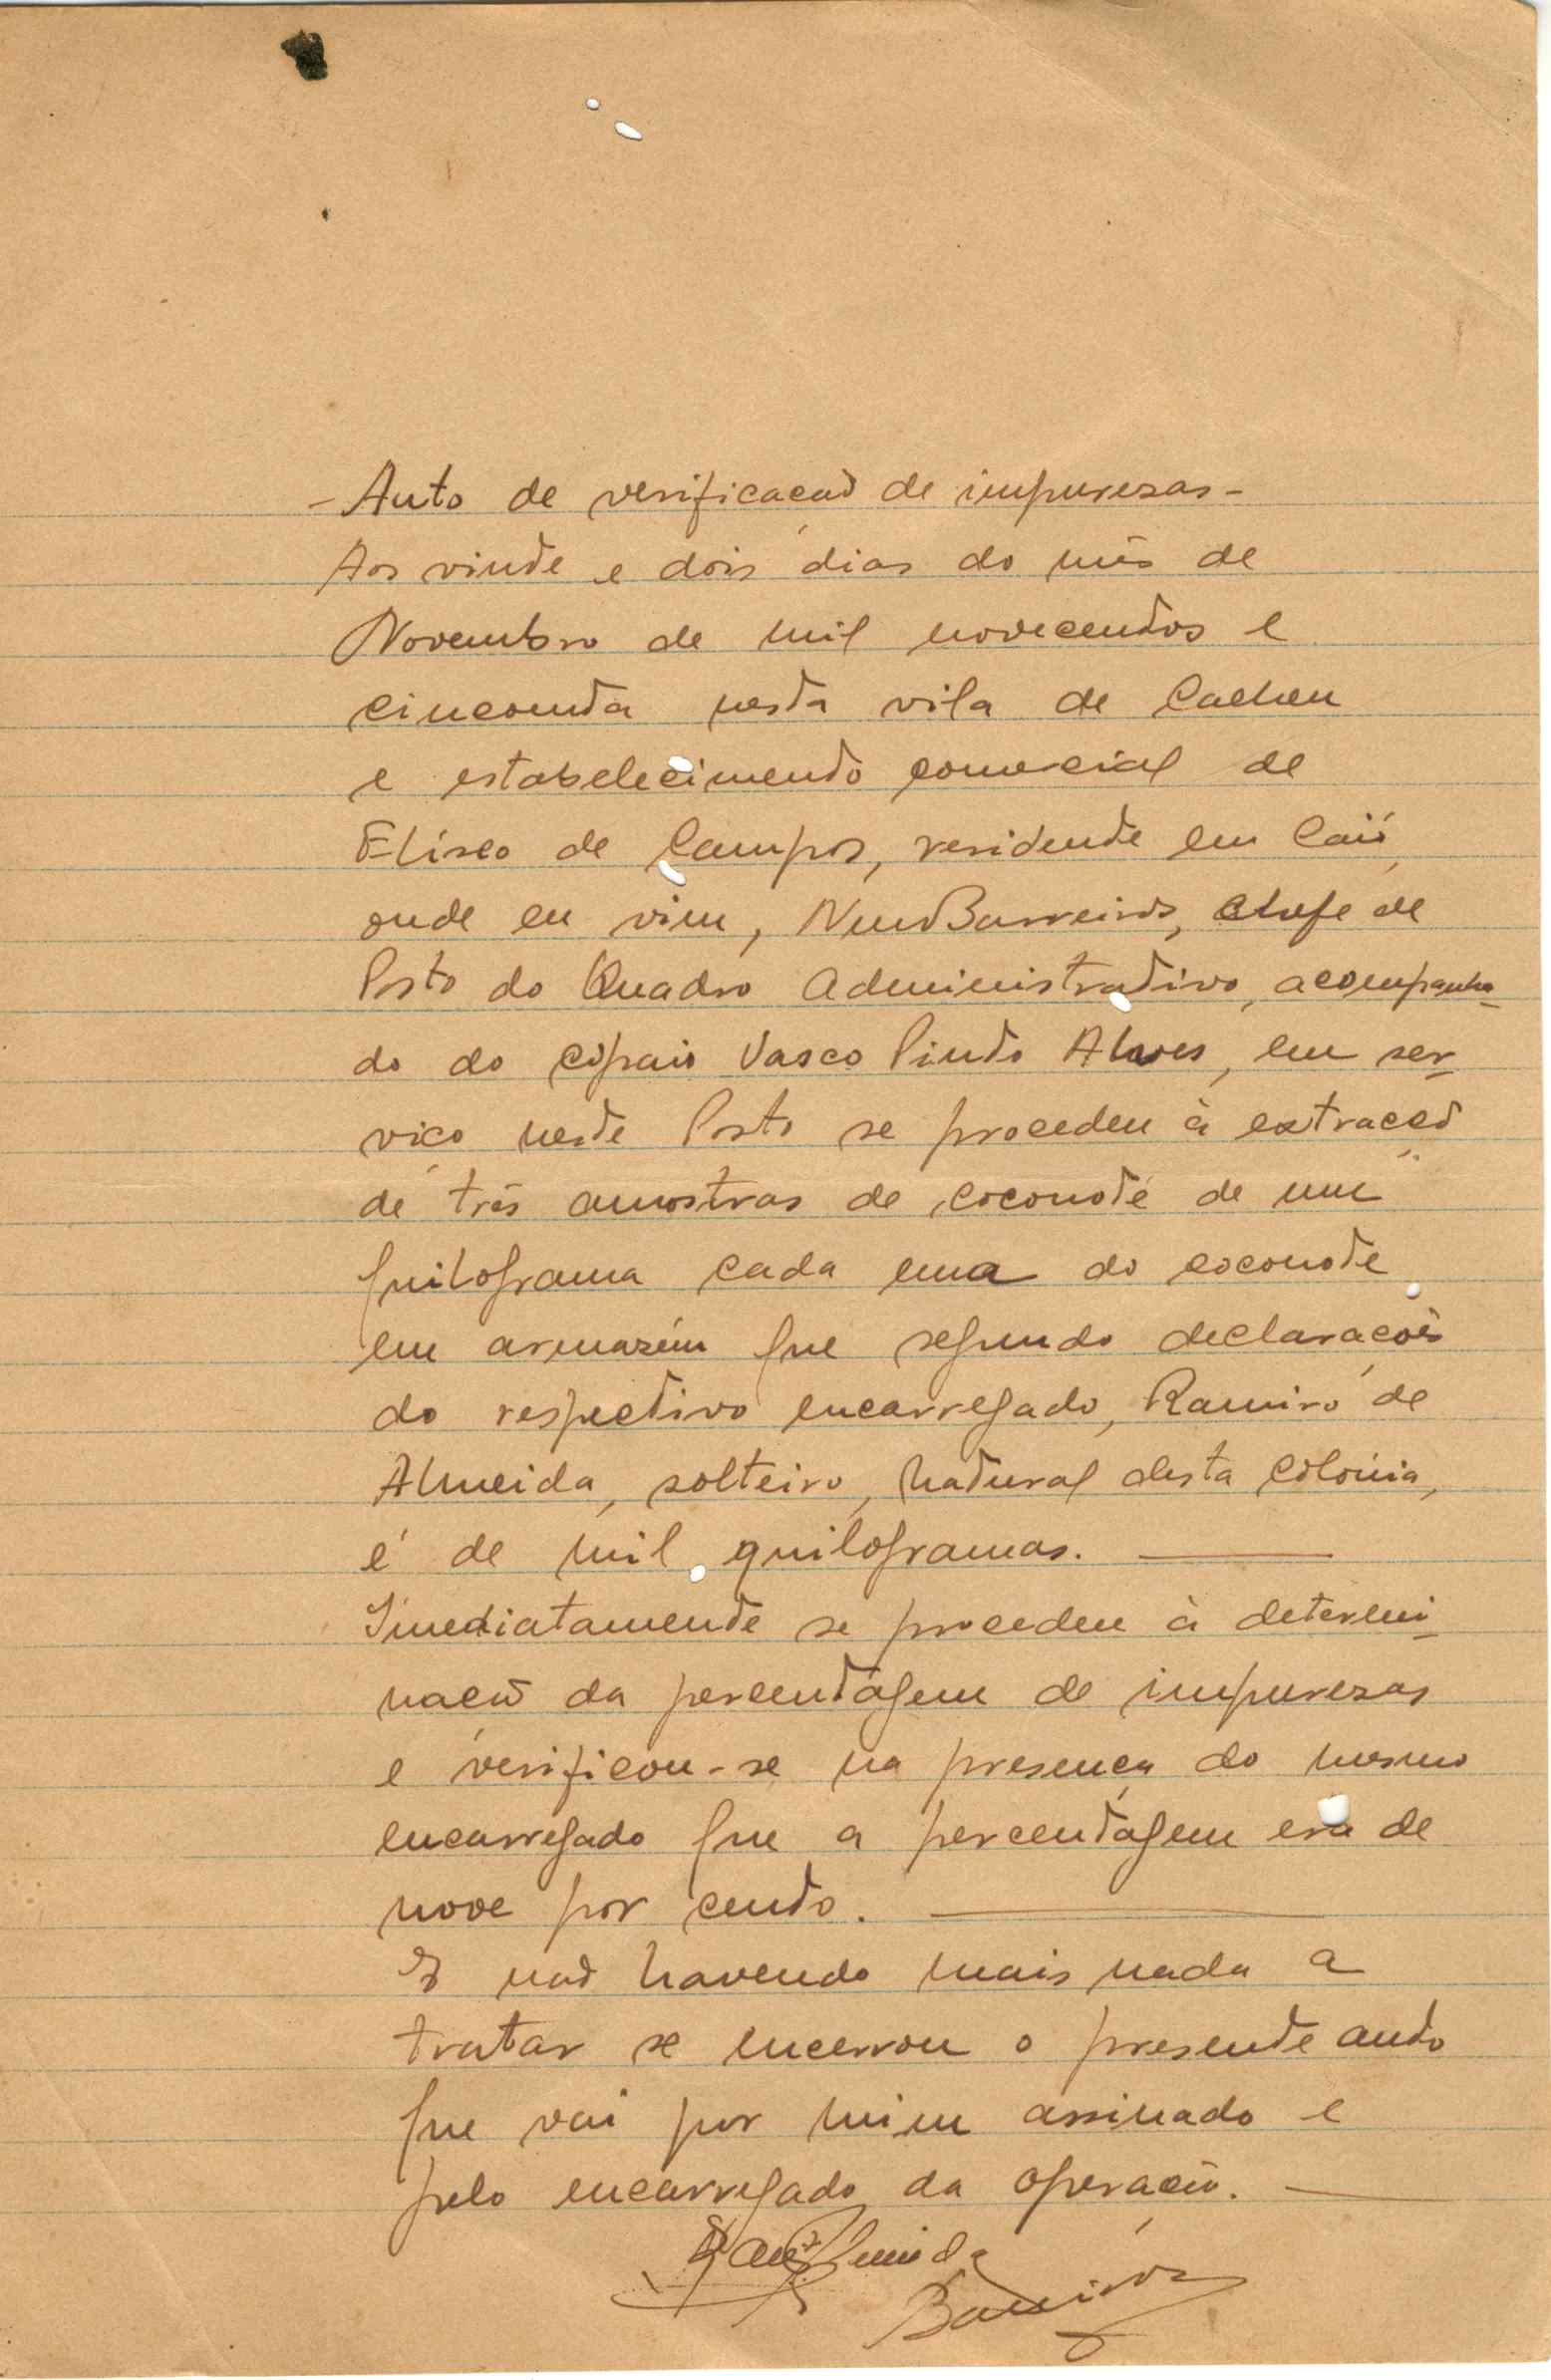 - Auto de verificação de impurezas -
Aos vinte e dois dias do mês de
Novembro de mil novecentos e
cinconta nesta vila de Cacheu
e estabelecimento comercial de
Elíseo de Campos, residente em Caió,
onde eu vim, Nuno Barreiros, chefe de
Posto do Quadro Administrativo, acompanha-
do do cipaio Vasco Pinto Alves, em ser-
viço neste Posto se procedeu à extração
de três amostras de coconote de um
quilograma cada uma do coconote
em armazém que segundo declarações
do respectivo encarregado, Ramiro de
Almeida, solteiro, natural desta colónia,
é de mil quilogramas. ———
Imediatamente se procedeu à determi-
nação da percentágem de impurezas
e verificou-se na presença do mesmo
encarregado que a percentágem era de
nove por cento. ———
E não havendo mais nada a
tratar se encerrou o presente auto
que vai por mim assinado e
pelo encarregado da operação. ———
Almeida
Barreiros